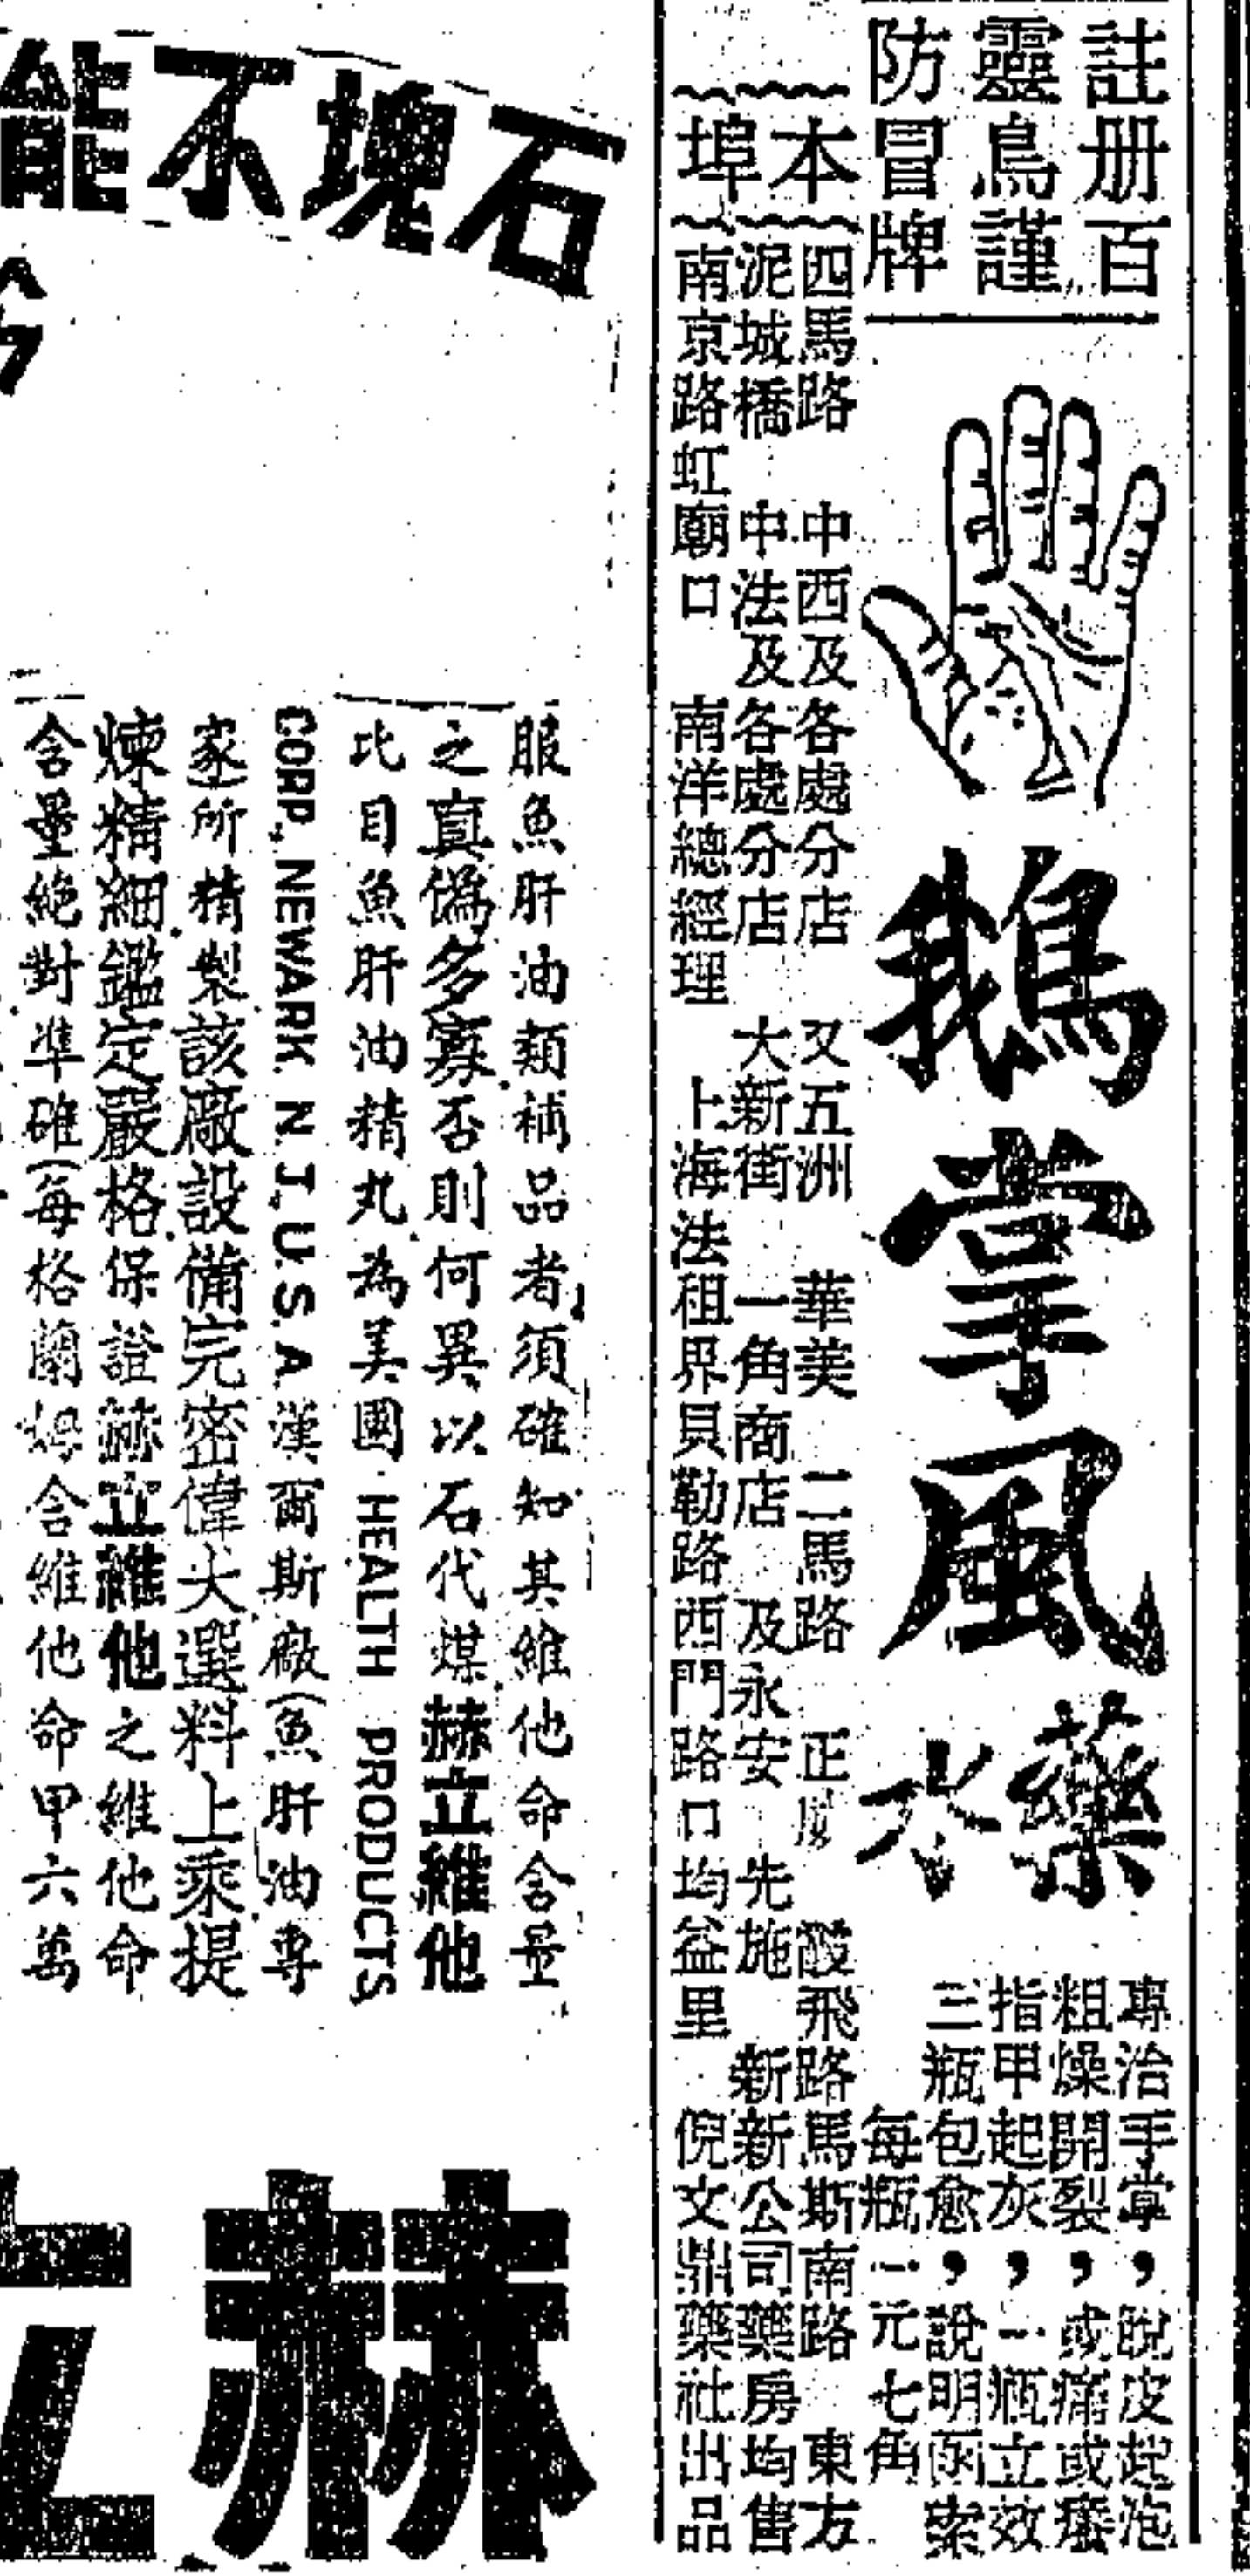 註册百
靈鳥謹
防冒牌
鵝掌風
藥水
專治手掌，脫皮起泡
粗燥開裂，或痛或癢
指甲起灰，一瓶立效
三瓶包愈，說明函索
每瓶一元七角
本埠
四馬路 中西及各處分店 又五洲 華美 二馬路 正威 霞飛路馬斯南路 東方
泥城橋 中法及各處分店 大新街 一角商店 及永安 先施 新新公司藥房均售
南京路虹廟口 南洋總經理 上海法租界貝勒路西門路口均益里 倪文鼎藥社出品
石塊不能
服魚肝油類補品者須確知其維他命含量
之真僞多寡否則何異以石代煤赫立維他
比目魚肝油精丸為美國 HEALTH PRODUCTS
CORP., NEWARK N. J., U. S. A. 漢爾斯廠(魚肝油專
家)所精製該廠設備完密偉大選料上乘提
煉精細鑑定嚴格保證赫立維他之維他命
含量絕對準確(每格蘭姆含維他命甲六萬
赫